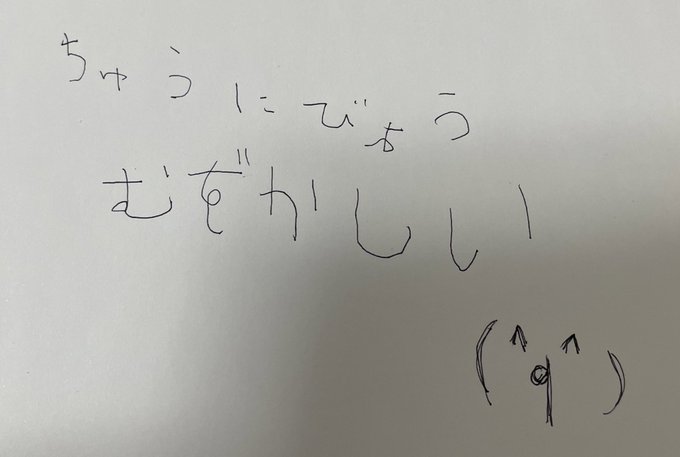 ちゅうにびょう
むずかしい
(^q^)